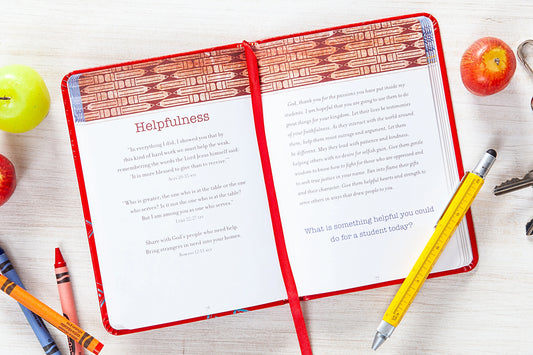 Helpfulness
"In everything I did, I showed you that by
this kind of hard work we must help the weak,
remembering the words the Lord Jesus himself said:
'It is more blessed to give than to receive.'"
Acts 20:35 NIV
"Who is greater, the one who is at the table or the
one who serves? Is it not the one who is at the table?
But I am among you as one who serves."
Luke 22:27 NIV
Share with God's people who need help.
Bring strangers in need into your homes.
Romans 12:13 NCV
God, thank you for the passions you have put inside my
students. I am hopeful that you are going to use them to do
great things for your kingdom. Let their lives be testimonies
of your faithfulness. As they interact with the world around
them, help them meet outrage and argument. Let them
be different. May they lead with patience and kindness,
helping others with no desire for selfish gain. Give them gentle
wisdom to know how to fight for those who are oppressed and
to seek true justice in your name. Burn into flame their gifts
and their character. Give them helpful hearts and strength to
serve others in ways that draw people to you.
What is something helpful you could
do for a student today?